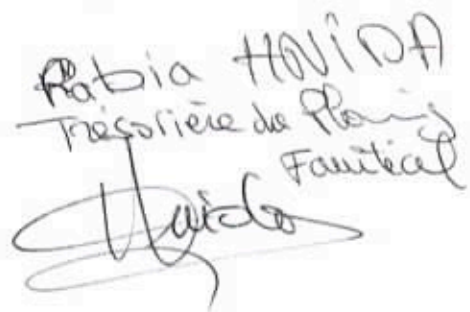 Rabia HNIDA
Trésorière du Planing
Familial
Hnida